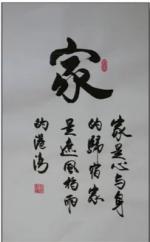 家
家是心与身
的归宿家
是遮风挡雨
的港湾